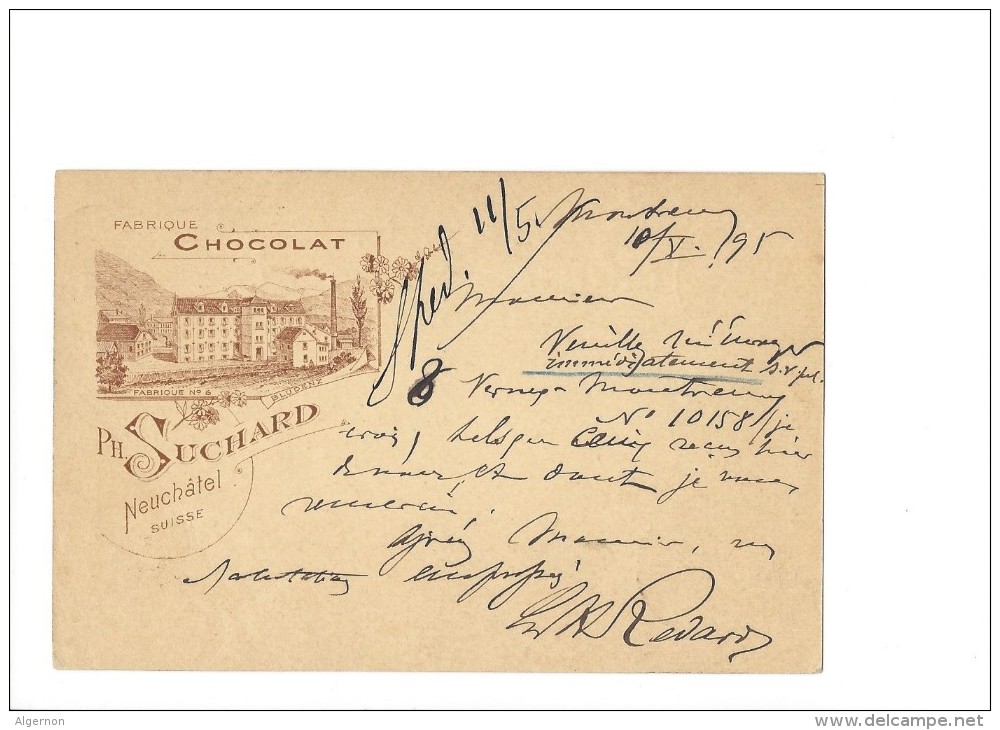 FABRIQUE
CHOCOLAT
FABRIQUE Nº 6
BLUDENZ
PH. SUCHARD
Neuchâtel
SUISSE
11/5
Montreux
10/V. 95
Monsieur
Veuillez
immédiatement s.v.pl.
8 Vernex-Montreux
Nº 10158 / je
crois, reçus hier
de vous, et dont je vous
remercie.
Agréez Monsieur, mes
salutations empressées
Redard
Algernon
delcampe.net